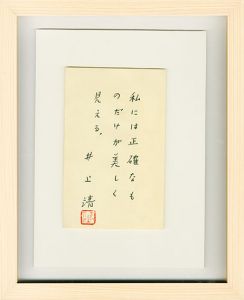 私には正確なも
のだけが美しく
見える。
井上清